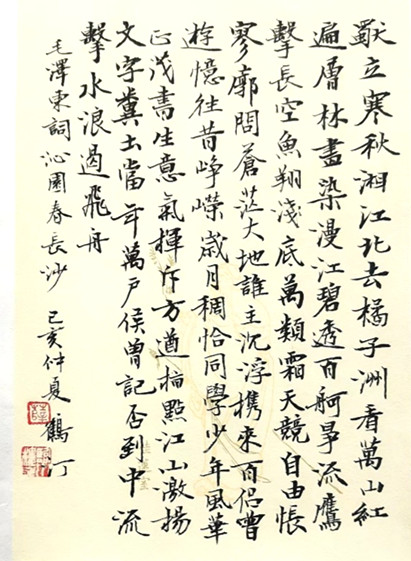 獨立寒秋湘江北去橘子洲看萬山紅
遍層林盡染漫江碧透百舸爭流鷹
擊長空魚翔淺底萬類霜天競自由悵
寥廓問蒼茫大地誰主沉浮携來百侶曾
遊憶往昔崢嶸歲月稠恰同學少年風華
正茂書生意氣揮斥方遒指點江山激揚
文字糞土當年萬戶侯曾記否到中流
擊水浪遏飛舟
毛澤東詞沁園春長沙 己亥仲夏 鶴汀